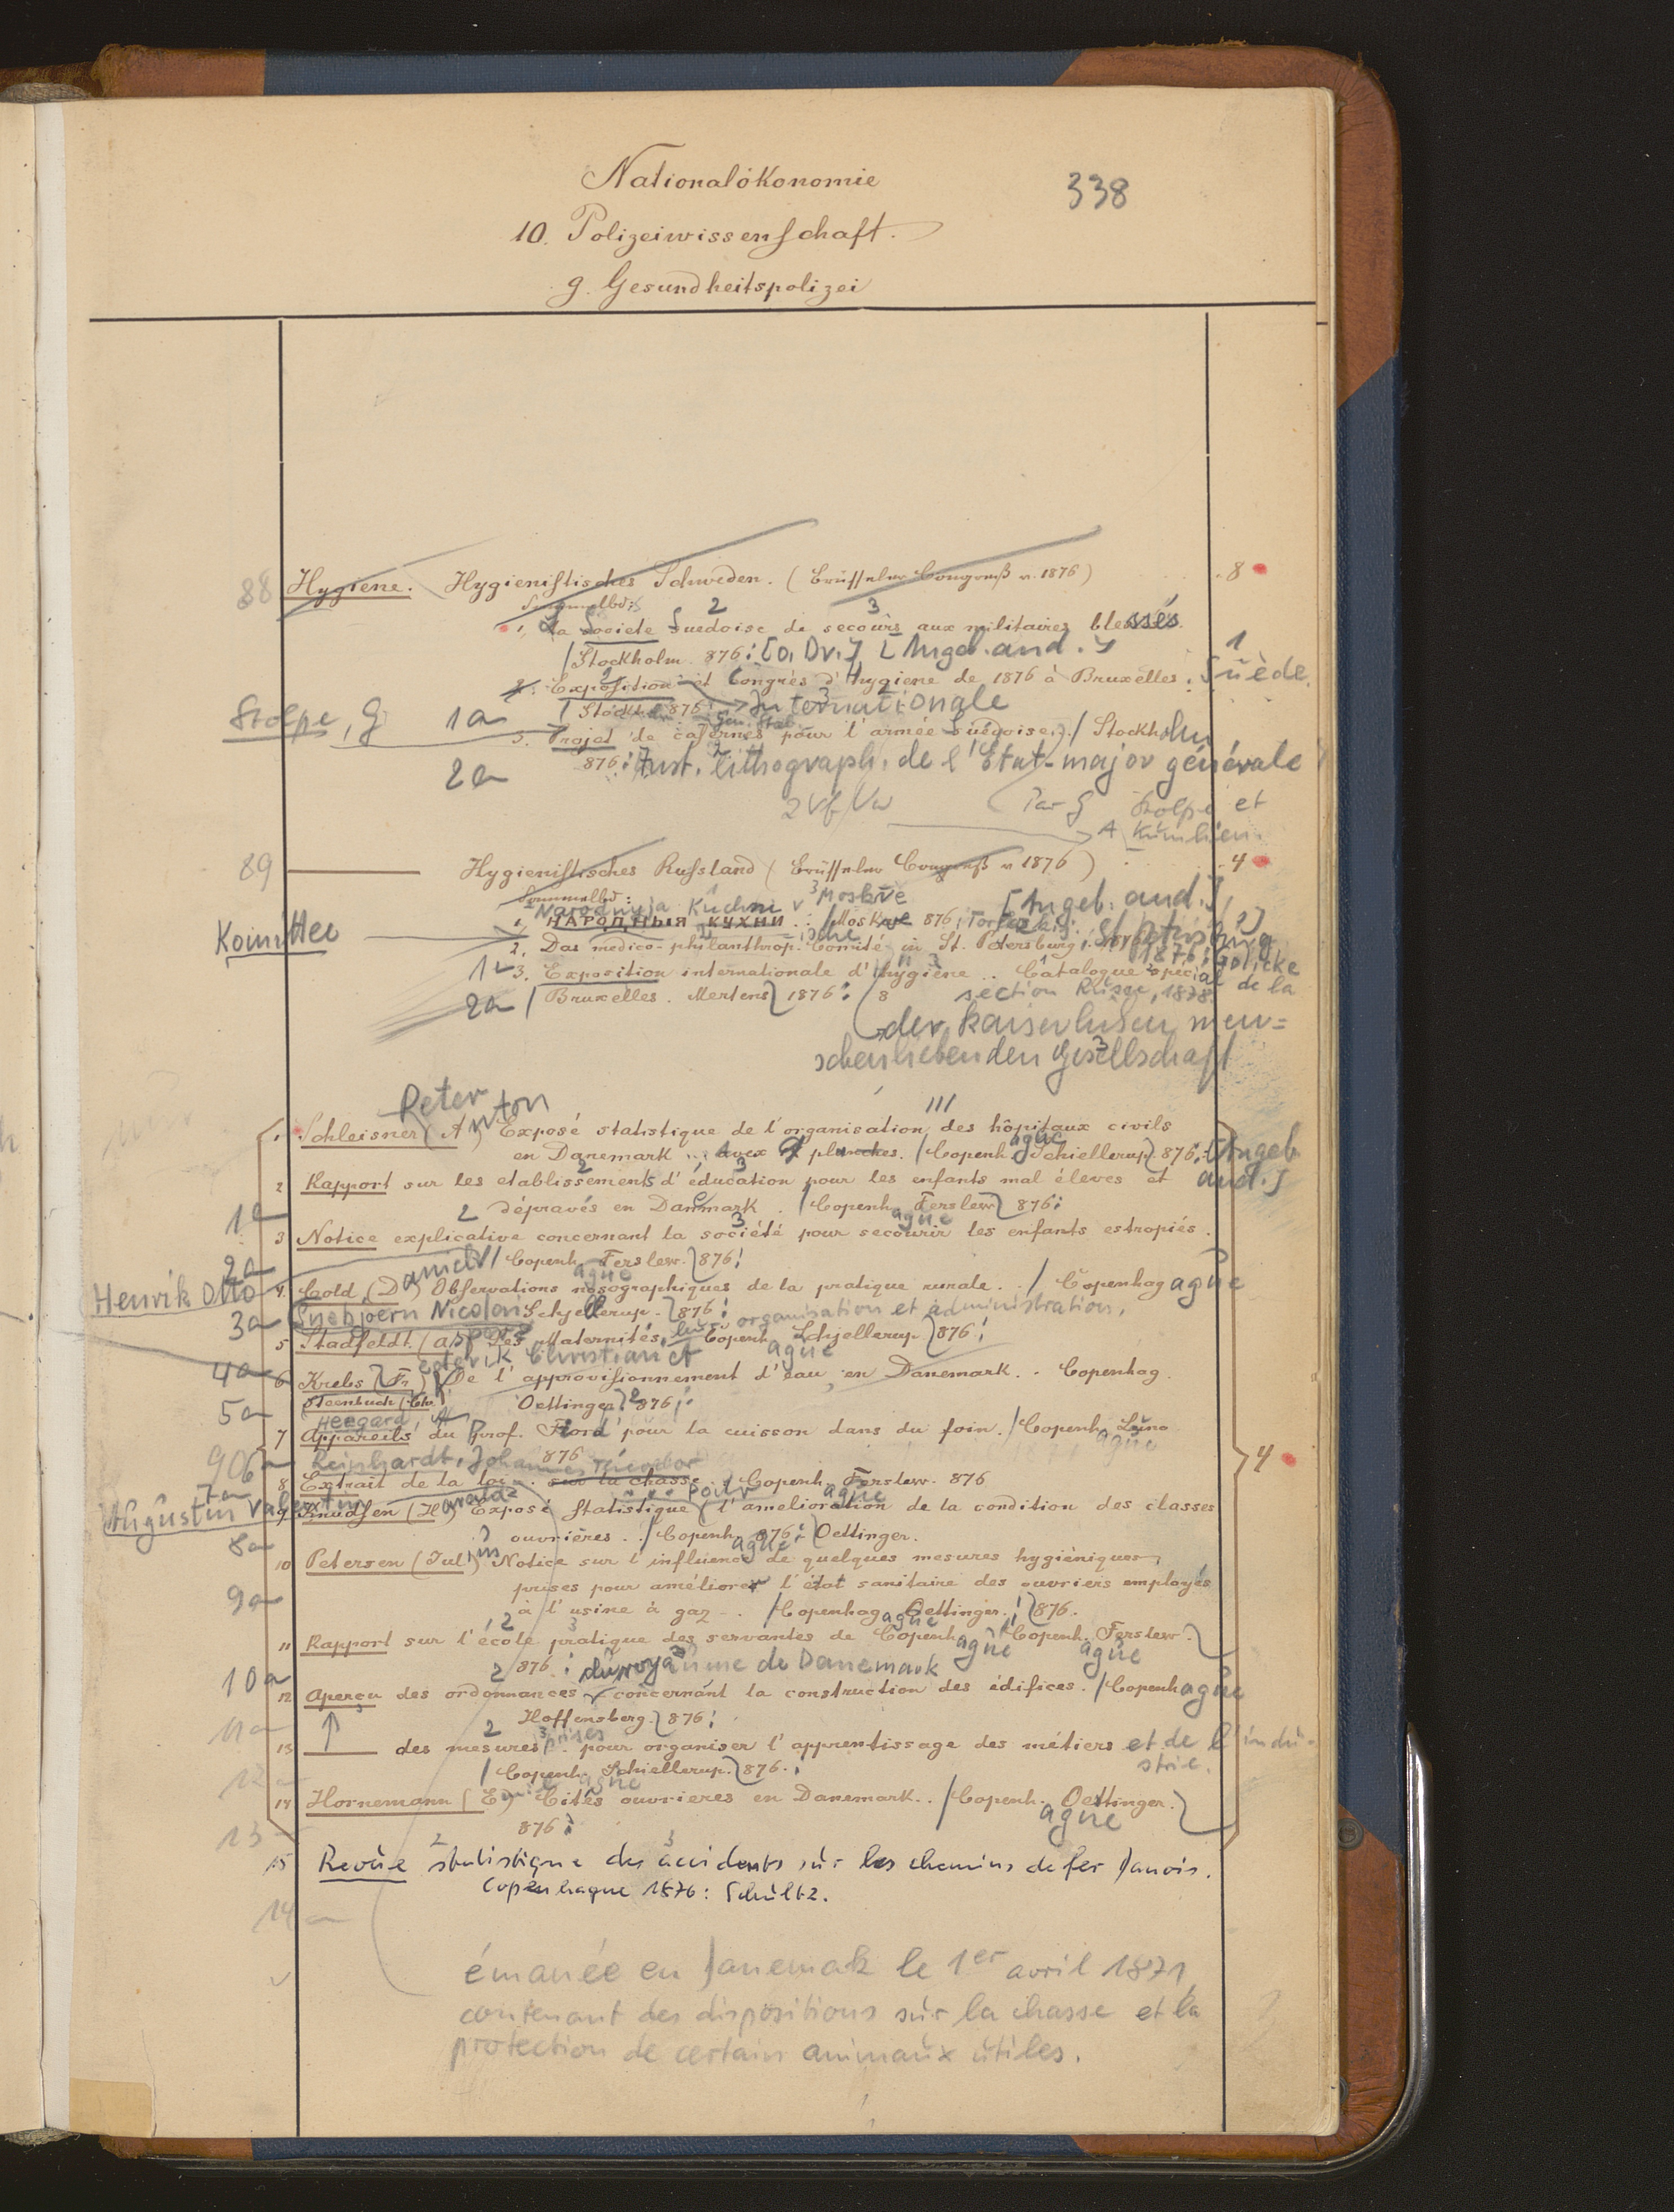 Nationalökonomie
338
10. Polizeiwissenschaft.
g. Gesundheitspolizei
88 Hygiene. Hygienistisches Schweden. (Brüsseler Congreß v. 1876) 8
Sammelbd:
1, La Societe Suedoise de secours aux militaires blessés.
Stockholm 876: [o. Dr.] [Angeb. and.]
2. Exposition et Congrès d'hygiene de 1876 à Bruxelles. Suède.
Stockholm 876 Internationale
Stolpe, G 1a
3. Projet de casernes pour l'armée Suédoise. / Stockholm
2a 876: Inst. lithograph. de l'Etat-major générale
Par G Stolpe et
A Kumlien.
89 Hygienistisches Russland (Brüsseler Congreß v. 1876) 4
Sammelbd:
Narodnyja Kuchni v Moskve [Angeb. and.]
1, НАРОДНЫЯ КУХНИ .. /Moskve 876;
Komittee
2. Das medico-philanthrop. Comité in St. Petersburg. St. Petersburg
1876: Golicke
1a 3. Exposition internationale d'hygiène .. Catalogue special de la
section Russe, 1878
2a / Bruxelles. Mertens 1876: 8
der kaiserlichen men=
schenliebenden Gesellschaft
Peter
1 Schleisner (Anton) Exposé statistique de l'organisation des hôpitaux civils
en Danemark .. avec planches. /Copenhague Schiellerup 876. [Angeb.
and.]
2 Rapport sur les etablissements d'éducation pour les enfants mal éleves et
1a dépravés en Danemark. /Copenhague Ferslew 876:
3 Notice explicative concernant la société pour secourir les enfants estropiés.
2a /Copenhague Ferslew. 876:
Henrik Otto
4. Cold, (Daniel) Observations nosographiques de la pratique rurale. . / Copenhague
3a Snebjoern Nicolai Schjellerup. 876: organisation et administration.
5 Stadfeldt. (Asp Des Maternités, leur Copenhague Schjellerup 876:
ederik Christian et
4a 6 Krebs (Fr) De l'approvisionnement d'eau en Danemark. . Copenhag.
Steenbuch (Chr.) Oettinger 876:
5a Heegard, A
7 Appareils du Prof. Fjord pour la cuisson dans du foin. /Copenhague Luno
876
906a Reinhardt, Johannes Theodor
8 Extrait de la loi .. sur la chasse. /Copenhague Ferslew. 876
7a
Augustin Valentin
9 Knudsen (Harald) Exposé Statistique pour l'amelioration de la condition des classes
8a ouvrières .. /Copenhague 876: Oettinger.
10 Petersen (Julius) Notice sur l'influence de quelques mesures hygièniques,
prises pour améliorer l'état sanitaire des ouvriers employés
9a à l'usine à gaz .. /Copenhague Oettinger. 876.
11 Rapport sur l'école pratique des servantes de Copenhague Copenhague Ferslew.
876: du royaume de Danemark
10a 12 Aperçu des ordonnances concernant la construction des édifices. /Copenhague
Hoffensberg. 876:
11a 13 des mesures prises pour organiser l'apprentissage des métiers et de l'indu-
strie.
12a /Copenhague Schiellerup. 876.
14 Hornemann (Emil) Cités ouvrieres en Danemark.. /Copenhague Oettinger.
13 876:
4
15 Revue statistique des accidents sur les chemins de fer Danois.
Copenhague 1876: Schultz.
14a
émanée en Danemark le 1er avril 1871,
contenant des dispositions sur la chasse et la
protection de certain animaux utiles.